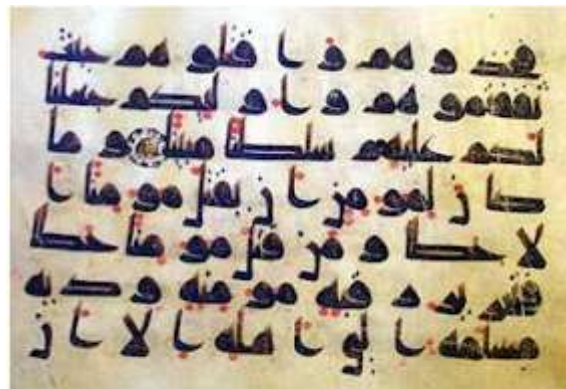 فخذوهم واقتلوهم حيث
ثقفتموهم واولىكم جعلنا
لكم عليهم سلطنا مبينا وما
كان لمومن ان يقتل مومنا ا
لا خطا ومن قتل مومنا خطا
فتحرير رقبة مومنة ودية
مسلمة الى اهله الا ان